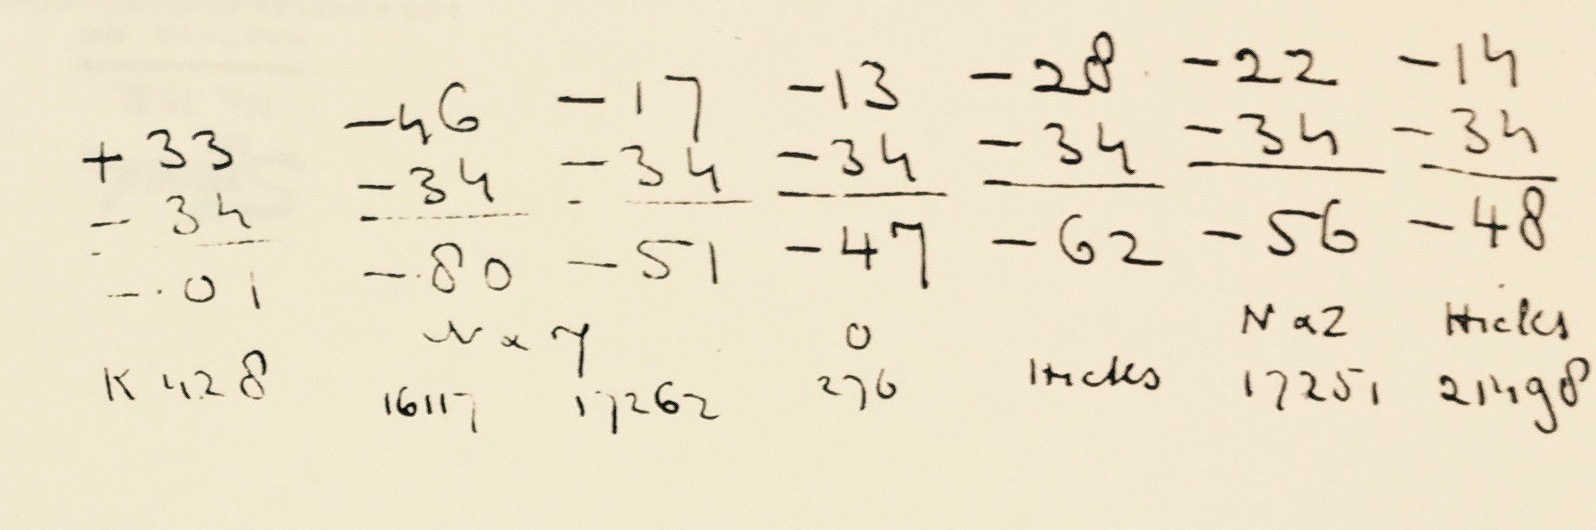 + 33 -46 -17 -13 -28 -22 -14
- 34 -34 -34 -34 -34 -34 -34
-.01 -.80 -51 -47 -62 -56 -48
N α y O N α Z Hicks
K 428 16117 17262 276 Hicks 17251 21498